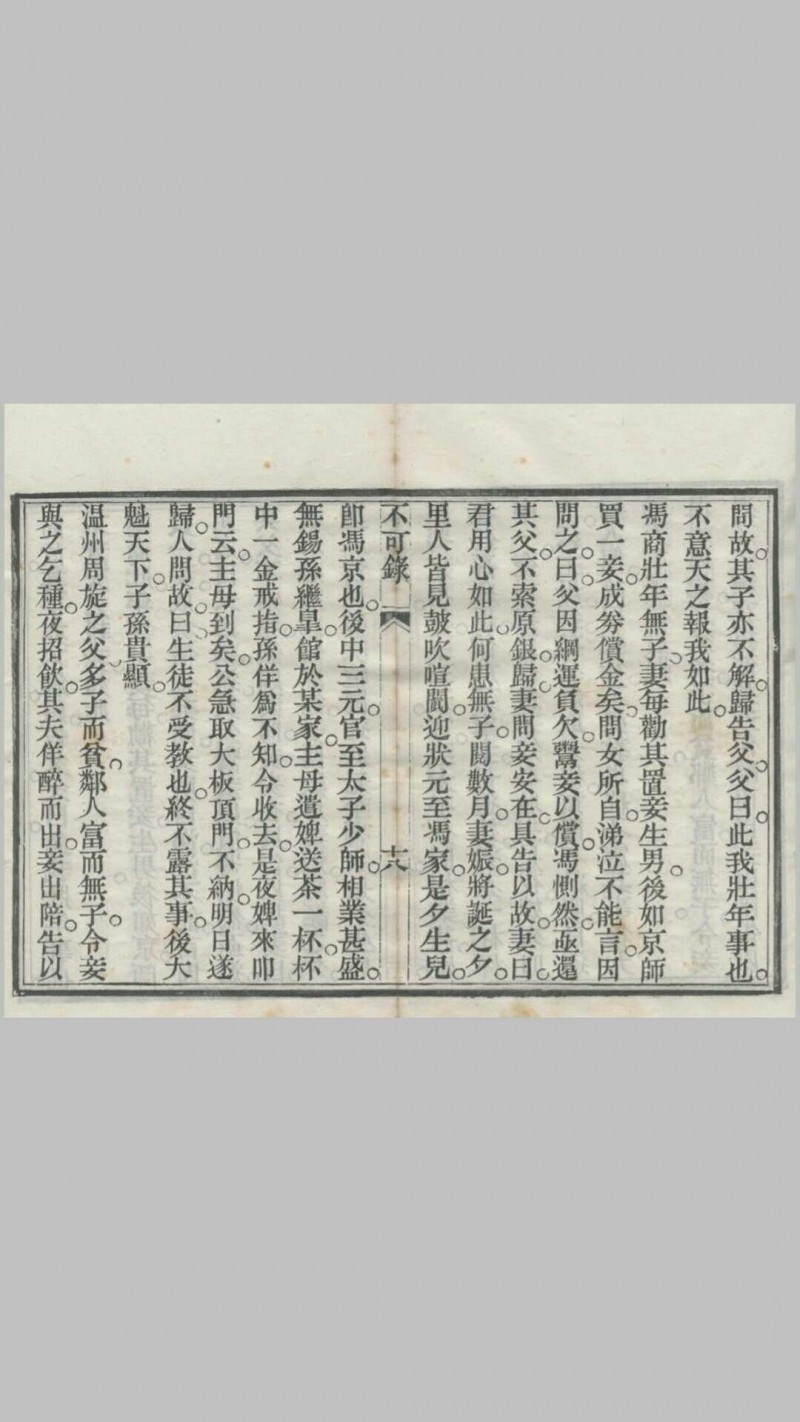 問故。其子亦不解。歸告父。父曰。此我壯年事也。
不意天之報我如此。
馮商壯年無子。妻每勸其置妾生男。後如京師
買一妾。成劵償金矣。問女所自。涕泣不能言。因
問之。曰。父因綱運負欠。鬻妾以償。馮惻然。亟還
其父。不索原銀。歸。妻問妾安在。具告以故。妻曰。
君用心如此。何患無子。閱數月。妻娠。將誕之夕。
里人皆見鼓吹喧闐。迎狀元至馮家。是夕生兒。
不可錄 十八
卽馮京也。後中三元。官至太子少師。相業甚盛。
無錫孫繼皐。館於某家。主母遣婢送茶一杯。杯
中一金戒指。孫佯爲不知。令收去。是夜婢來叩
門。云。主母到矣。公急取大板頂門。不納。明日遂
歸。人問故。曰。生徒不受教也。終不露其事。後大
魁天下。子孫貴顯。
温州周旋之父。多子而貧。鄰人富而無子。令妾
與之乞種。夜招飲。其夫佯醉而出。妾出陪。告以